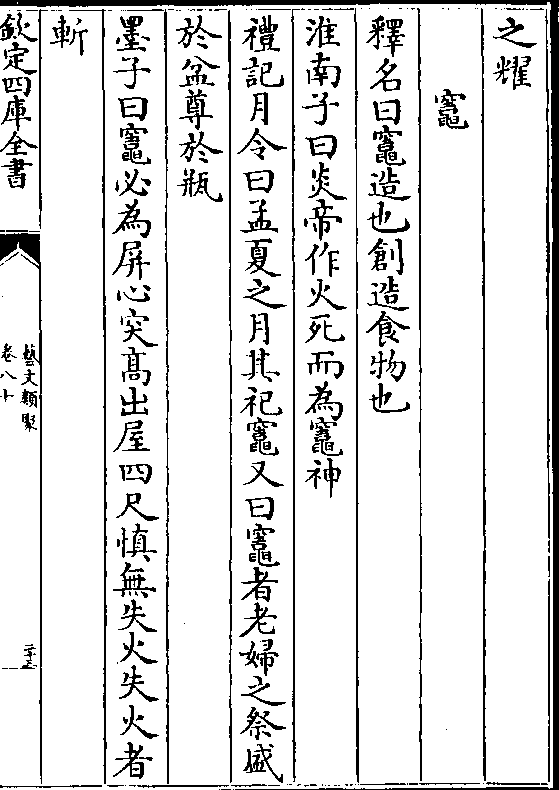 之耀
竈
釋名曰竈造也創造食物也
淮南子曰炎帝作火死而為竈神
禮記月令曰孟夏之月其祀竈又曰竈者老婦之祭盛
於盆尊於瓶
墨子曰竈必為屏心突高出屋四尺慎無失火失火者
斬
欽定四庫全書
藝文類聚
卷八十
二十三